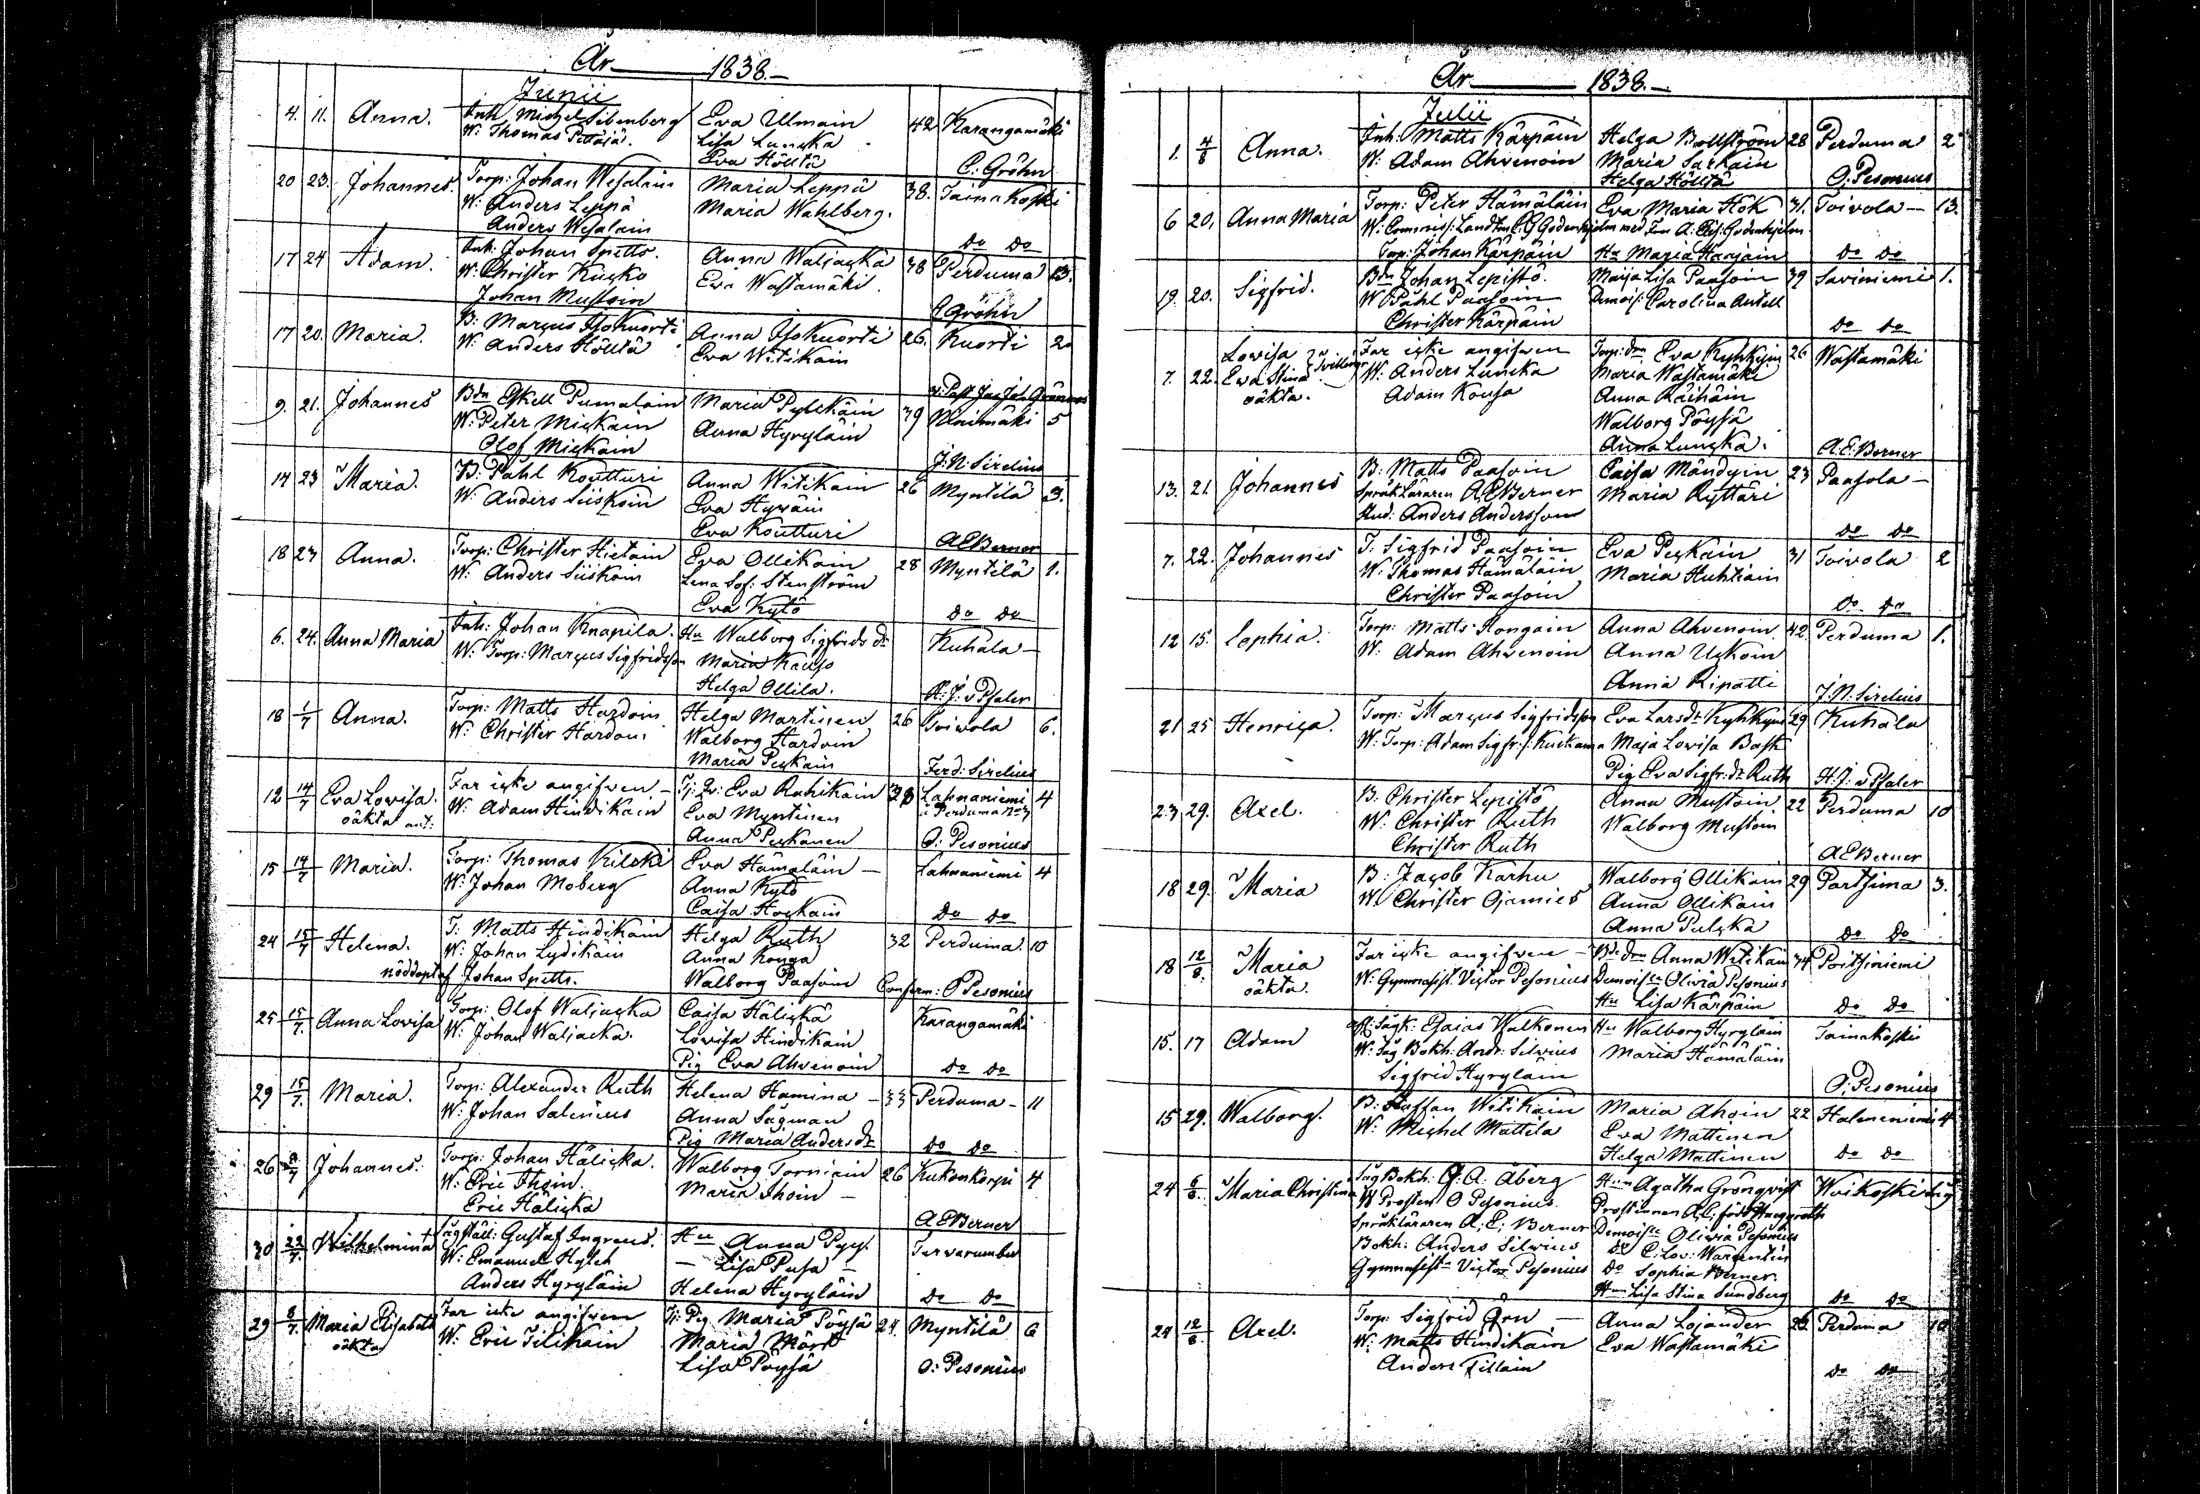 År 1838.
Junii
4. 11. Anna. Inh. Michel Sibenberg Eva Ulmain 42 Karangamäki
W: Thomas Pettäjä. Lisa Lunska
Eva Höltta C: Gröhn
20 23. Johannes. Torp: Johan Wesalain Maria Leppä 38. Tainakoski
W: Anders Leppä Maria Wahlberg.
Anders Wesalain do do
17 24 Adam. Inh: Johan Spetts. Anna Waljacka 38 Perduma 13.
W: Christer Kucko Eva Wastamäki.
Johan Mustoin C Gröhn
17 20. Maria. B: Marcus Isokuorti Anna Isokuorti 26. Kuorti 2
W: Anders Höltta Eva Witikain
9. 21. Johannes Bdn Eskell Pumalain Maria Pylckäin 39 Niinimäki 5
W: Peter Mickain Anna Hyryläin
Olof Mickain J: N: Sirelius
14 23 Maria. B: Påhl Koutturi Anna Witikain 26 Myntilä 3.
W: Anders Siiskoin Eva Hyväin
Eva Koutturi A E Berner
18 23 Anna. Torp: Christer Hietain Eva Ollikain 28 Myntilä 1.
W: Anders Siiskoin Lena Sof: Stenström
Eva Kytö do do
6. 24. Anna Maria Inh: Johan Knapila. Hu Walborg Sigfrids dr Kuhala
W: Torp: Marcus Sigfridsson Maria Kauso
Helga Ollila. H: J: v Pfaler
18 1/7 Anna. Torp: Matts Hardoin Helga Martinen 26 Toivola 6.
W: Christer Hardoin Walborg Hardoin
Maria Peckain Ferd: Sirelius
12 14/7 Eva Lovisa. Far icke angifven Eva Ruhikain 38 Lahnaniemi 4
oäkta W: Adam Hindikain Eva Myntinen å Perduma
Anna Peckanen O: Pesonius
15 14/7 Maria. Torp: Thomas Kilcki Eva Hämäläin Lahnaniemi 4
W: Johan Moberg Anna Kytö
Caisa Hockain do do
24 15/7 Helena. T: Matts Hindikain Helga Ruth 32 Perduma. 10
W: Johan Lydikäin Anna Konga
nöddopt af Johan Spetts. Walborg Paasoin Conferm: O Pesonius
25 15/7. Anna Lovisa Torp: Olof Waljacka Caisa Hälickä Karangamäki
W: Johan Waljacka. Lovisa Hindikain
Pig Eva Ahvenoin do do
29 15/7. Maria. Torp: Alexander Ruth Helena Hamina 33 Perduma 11
W: Johan Salenius Anna Sägman
Pig Maria Anders dr do do
26 8/7 Johannes. Torp: Johan Hälicka. Walborg Torniain 26 Kukonkorpi 4
W: Eric Ihoin. Maria Ihoin
Eric Hälicka A E Berner
30 22/7. Wilhelmina Gustaf Ingreus. Hu Anna Pyy. Tervarumbu
W: Emanuel Lisa Pusa
Anders Hyryläin Helena Hyryläin do do
29 8/7. Maria Elisabeth Far icke angifven Tj: Pig Maria Pöysä 24. Myntilä 6
oäkta W: Eric Tilikain Maria Mörk
Lisa Pöysä O: Pesonius
År 1838.
Julii
1. 4/8 Anna. Inh: Matts Kärpäin Helga Bollström 28 Perduma 2
W: Adam Ahvenoin Maria Sarkain
Helga Höltta O: Pesonius
6 20. Anna Maria Torp: Peter Hämäläin Eva Maria Hök 31. Toivola 13.
W: Commis: Landtm C. G Godenhjelm med Fru A: Godenhjelm.
Torp: Johan Kärpäin Hu Maria Harjain do do
19. 20. Sigfrid. Bdn Johan Lepistö. Maija Lisa Paasoin 39 Saviniemi 1.
W Påhl Paasoin Demois: Carolina Antell
Christer Kärpäin do do
7. 22. Lovisa Far icke angifven Torp: dr Eva Kyhkyin 26 Wastamäki
Eva Stina Tvillingar W: Anders Luncka Maria Wastamäki
oäkta. Adam Kousa Anna Räihäin
Walborg Pöysä
Anna Luncka. A. E: Berner
13. 21. Johannes B: Matts Paasoin Caisa Mändyin 23 Paasola
Språk Läraren A. E Berner Maria Ryttäri
Stud: Anders Andersson do do
7. 22. Johannes T. Sigfrid Paasoin Eva Peckain 31 Toivola 2
W: Thomas Hämäläin Maria Huhtiain
Christer Paasoin do do
12 15. Sophia. Torp: Matts Hongain Anna Ahvenoin 42. Perduma 1.
W: Adam Ahvenoin Anna Uckoin
Anna Ripatti J: N: Sirelius
21 25 Henrica. Torp: Marcus Sigfridsson Eva Larsdr Kyhkyin 29 Kuhala
W: Torp: Adam Sigfr: s: Kuckama Maja Lovisa Bask
Pig Eva Sigfr: dr Ruth H: J: v Pfaler
23. 29. Axel. B. Christer Lepistö Anna Mustoin 22 Perduma 10
W: Christer Ruth Walborg Mustoin
Christer Ruth A E Berner
18 29. Maria B: Jacob Karhu Walborg Ollikain 29 Partsima 3.
W. Christer Ojamies Anna Ollikain
Anna Pulcka do do
18 12/8. Maria Far icke angifven Bdr Anna Witikain 34 Poitsiniemi
oäkta. W: Gymnasist. Victor Pesonius Demoislle Olivia Pesonius
Hu Lisa Kärpäin do do
15. 17 Adam Esaias Walkonen Hu Walborg Hyryläin Tainakoski
W: Såg Bokh: Andr: Silvius Maria Hämäläin
Sigfrid Hyryläin O: Pesonius
15 29. Walborg. B: Staffan Witikain Maria Ahoin 22 Halmeniemi 4
W: Michel Mattila Eva Mattinen
Helga Mattinen do do
24 6/8. Maria Christina Såg Bokh: A: Åberg Hu Agatha Grönqvist Woikoski såg
W Prosten O Pesonius. Prostinnan född
Språkläraren A: E: Berner Demoislle Olivia Pesonius
Bokh: Anders Silvius do C: Lov: Wargentin
Gymnasist Victor Pesonius do Sophia Berner.
Hu Lisa Stina Sundberg do do
24 12/8. Axel. Torp: Sigfrid Örn Anna Lojander 26. Perduma 10
W: Matts Hindikain Eva Wastamäki
Anders Tillain do do